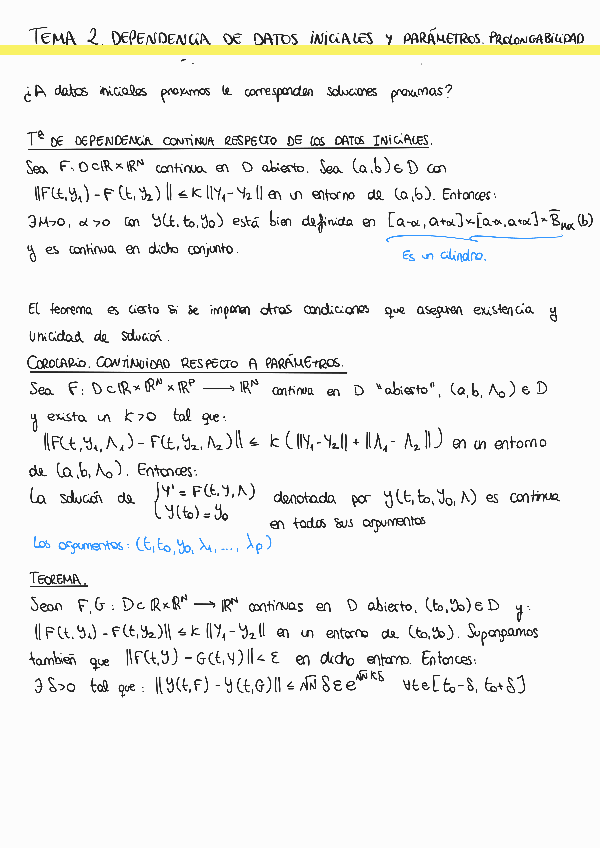 TEMA 2. DEPENDENCIA DE DATOS INICIALES Y PARÁMETROS. PROLONGABILIDAD
¿A datos iniciales proximos le corresponden soluciones proximas?
Tª DE DEPENDENCIA CONTINUA RESPECTO DE LOS DATOS INICIALES.
Sea F: D⊂ℝ×ℝᴺ continua en D abierto. Sea (a,b) ∈ D con
‖F(t,y₁) - F(t,y₂)‖ ≤ K‖y₁-y₂‖ en un entorno de (a,b). Entonces:
∃M>0, α>0 con y(t,t₀,y₀) está bien definida en [a-α,a+α]×[a-α,a+α]×B̄_Mα(b)
y es continua en dicho conjunto.
Es un cilindro.
El teorema es cierto si se imponen otras condiciones que aseguren existencia y
unicidad de solución.
COROLARIO. CONTINUIDAD RESPECTO A PARÁMETROS.
Sea F: D⊂ℝ×ℝᴺ×ℝᴾ ⟶ ℝᴺ continua en D "abierto", (a,b,Λ₀) ∈ D
y exista un K>0 tal que:
‖F(t,y₁,Λ₁) - F(t,y₂,Λ₂)‖ ≤ K (‖y₁-y₂‖ + ‖Λ₁-Λ₂‖) en un entorno
de (a,b,Λ₀). Entonces:
La solución de { y' = F(t,y,Λ) y(t₀) = y₀ denotada por y(t,t₀,y₀,Λ) es continua
en todos sus argumentos
Los argumentos: (t,t₀,y₀,λ₁,...,λp)
TEOREMA.
Sean F,G: D⊂ℝ×ℝᴺ ⟶ ℝᴺ continuas en D abierto, (t₀,y₀) ∈ D y:
‖F(t,y₁) - F(t,y₂)‖ ≤ K‖y₁-y₂‖ en un entorno de (t₀,y₀). Supongamos
también que ‖F(t,y) - G(t,y)‖ < ε en dicho entorno. Entonces:
∃ δ>0 tal que: ‖y(t,F) - y(t,G)‖ ≤ √N δ ε e^(√N K δ) ∀t∈[t₀-δ, t₀+δ]